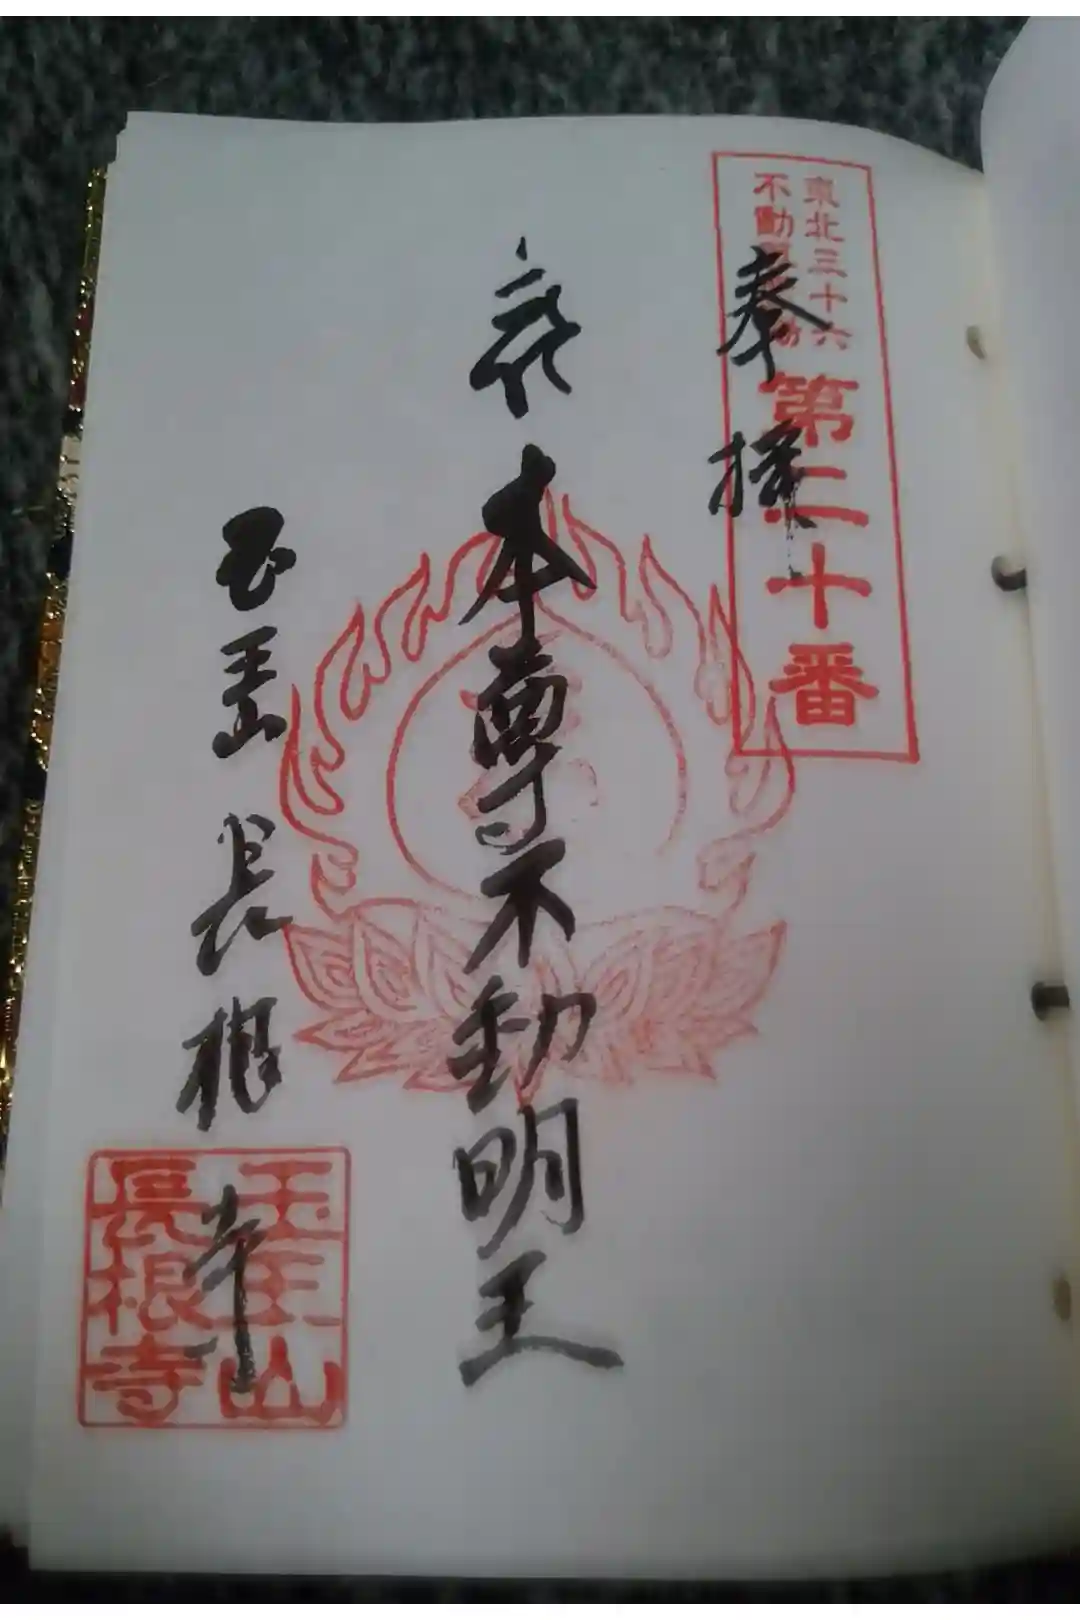 東北三十六
不動尊霊場
第二十番
奉拝
本尊不動明王
玉王山 長根寺
玉王山
長根寺